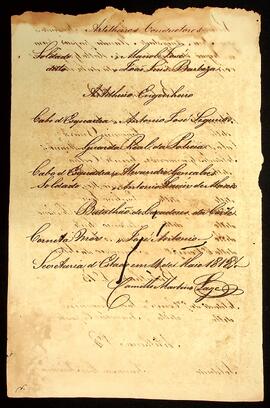 Artilheiros Conductores
Soldado " Manoel José
ditto " José Luis Barboza
Artilheiro Engenheiro
Cabo d'Esquadra " Antonio José Segundo
Guarda Real da Policia
Cabo d'Esquadra " Alexandre Gonçalves
Soldado " Antonio
Batalhão de Caçadores da Corte
Corneta Mór " José Antonio
Secretaria d'Estado em de Maio 1818
Camillo Martins Lage